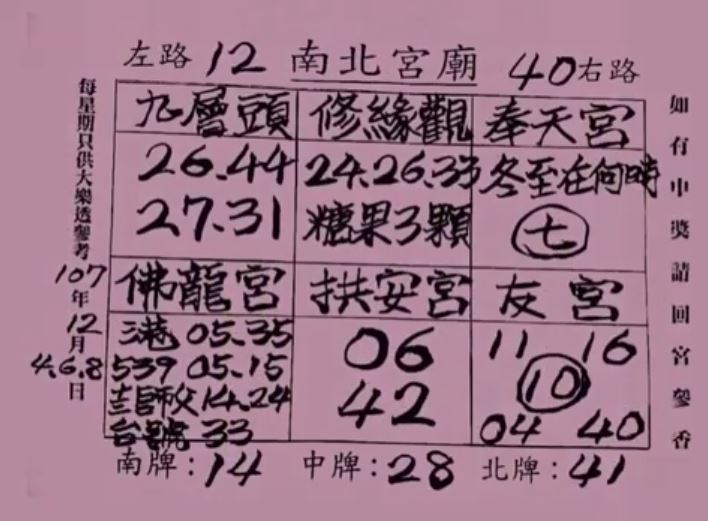 左路 12 南北宮廟 40 右路
每星期只供大樂透參考
107年12月4.6.8日
九層頭
26.44
27.31
修緣觀
24.26.33
糖果3顆
奉天宮
冬至在何時
七
佛龍宮
港 05.35
539 05.15
14.24
台號 33
拱安宮
06
42
友宮
11 16
10
04 40
南牌:14 中牌:28 北牌:41
如有中獎請回宮參香